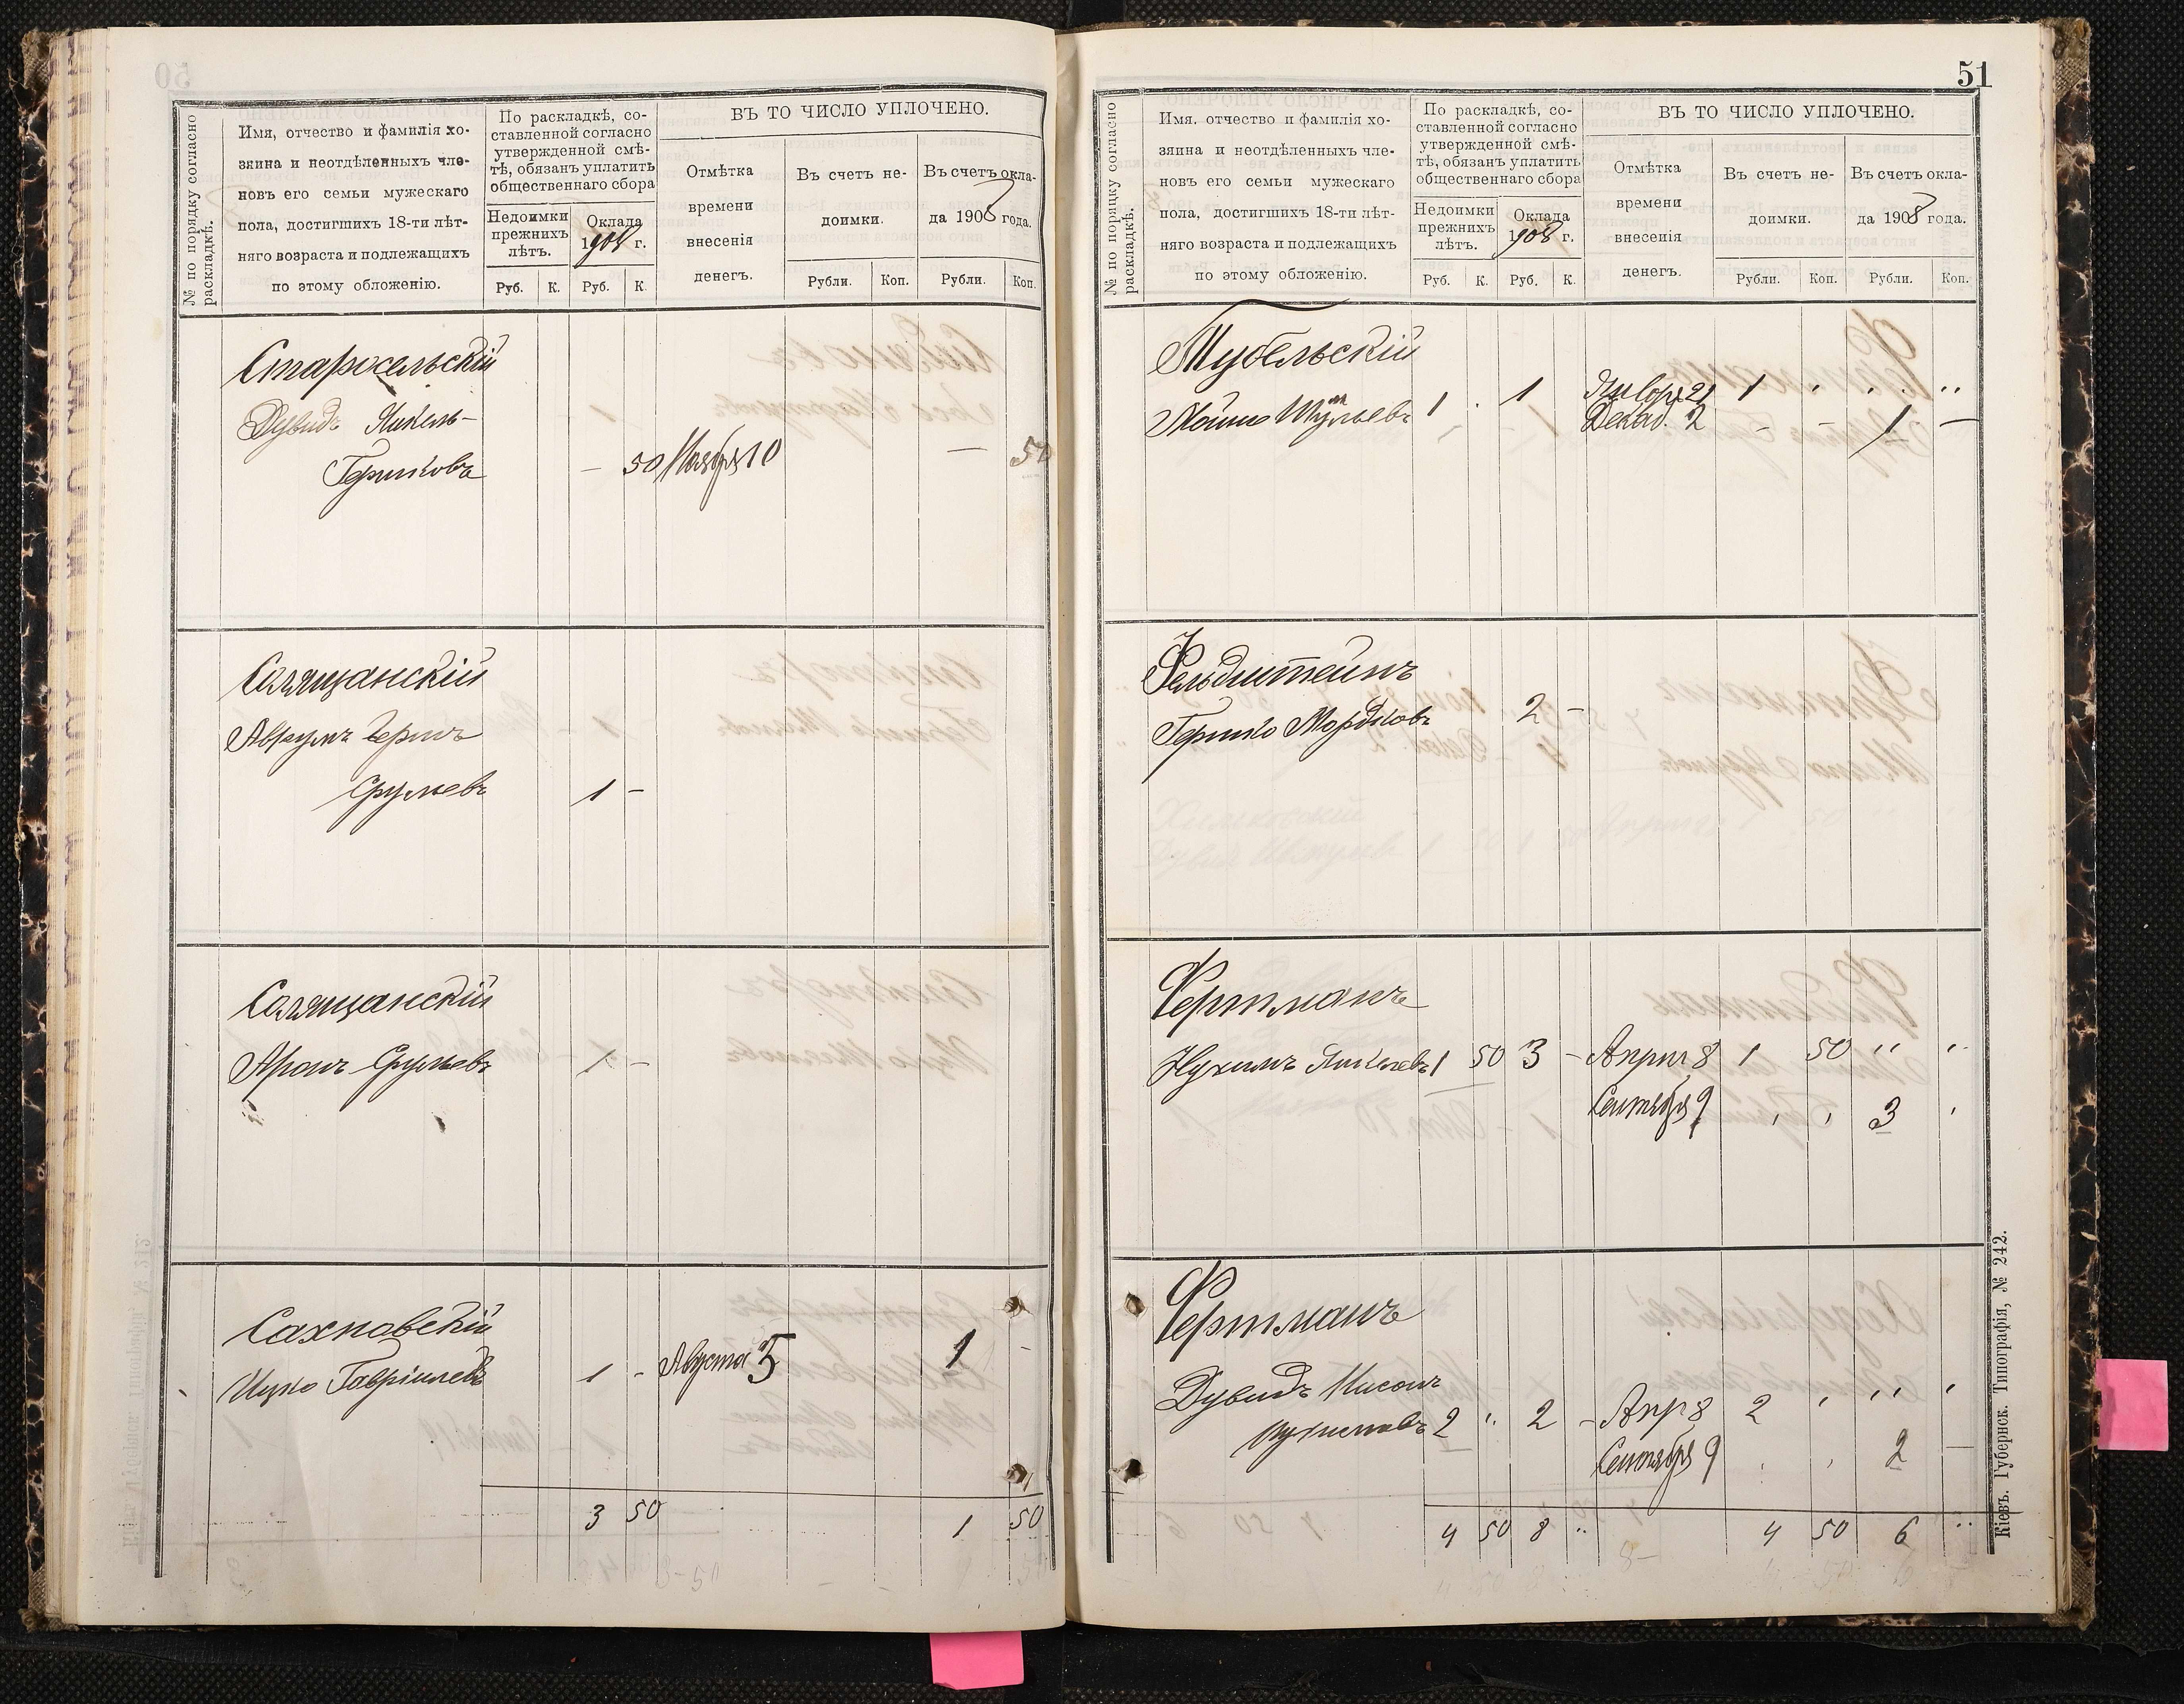 № по порядку согласно
раскладкѣ.
Имя, отчество и фамилія хо-
зяина и неотдѣленныхъ чле-
новъ его семьи мужескаго
пола, достигшихъ 18-ти лѣт-
няго возраста и подлежащихъ
по этому обложенію.
По раскладкѣ, со-
ставленной согласно
утвержденной смѣ-
тѣ, обязанъ уплатить
общественнаго сбора
Недоимки
прежнихъ
лѣтъ.
Оклада
1908 г.
Руб. К. Руб. К.
ВЪ ТО ЧИСЛО УПЛОЧЕНО.
Отмѣтка
времени
внесенія
денегъ.
Въ счетъ не-
доимки.
Рубли. Коп.
Въ счетъ окла-
да 1908 года.
Рубли. Коп.
Старосельскій
Дувидъ Янкель-
Гершковъ — 50 Ноября 10 — 50
Солящанскій
Аврумъ Герш
Срулевъ 1 —
Солящанскій
Аронъ Срулевъ 1 —
Сахновскій
Ицко Гавріилевъ 1 - Августа 5 1 -
3 50 1 50
51
№ по порядку согласно
раскладкѣ.
Имя, отчество и фамилія хо-
зяина и неотдѣленныхъ чле-
новъ его семьи мужескаго
пола, достигшихъ 18-ти лѣт-
няго возраста и подлежащихъ
по этому обложенію.
По раскладкѣ, со-
ставленной согласно
утвержденной смѣ-
тѣ, обязанъ уплатить
общественнаго сбора
Недоимки
прежнихъ
лѣтъ.
Оклада
1908 г.
Руб. К. Руб. К.
ВЪ ТО ЧИСЛО УПЛОЧЕНО.
Отмѣтка
времени
внесенія
денегъ.
Въ счетъ не-
доимки.
Рубли. Коп.
Въ счетъ окла-
да 1908 года.
Рубли. Коп.
Тубельскій
Мошко 1 1 Января 21 1
Декаб. 2 - - 1 —
Фельдштейнъ
Гершко Мордковъ 2 -
Фертманъ
Нухимъ Янкелевъ 1 50 3 - Апрѣл 8 1 50 " "
Сентября 9 3
Фертманъ
Дувидъ Нисонъ
Нухимовъ 2 " 2 - Апр 8 2
Сентября 9 2 —
4 50 8 " 4 50 6 "
Кіевъ. Губернск. Типографія, № 242.